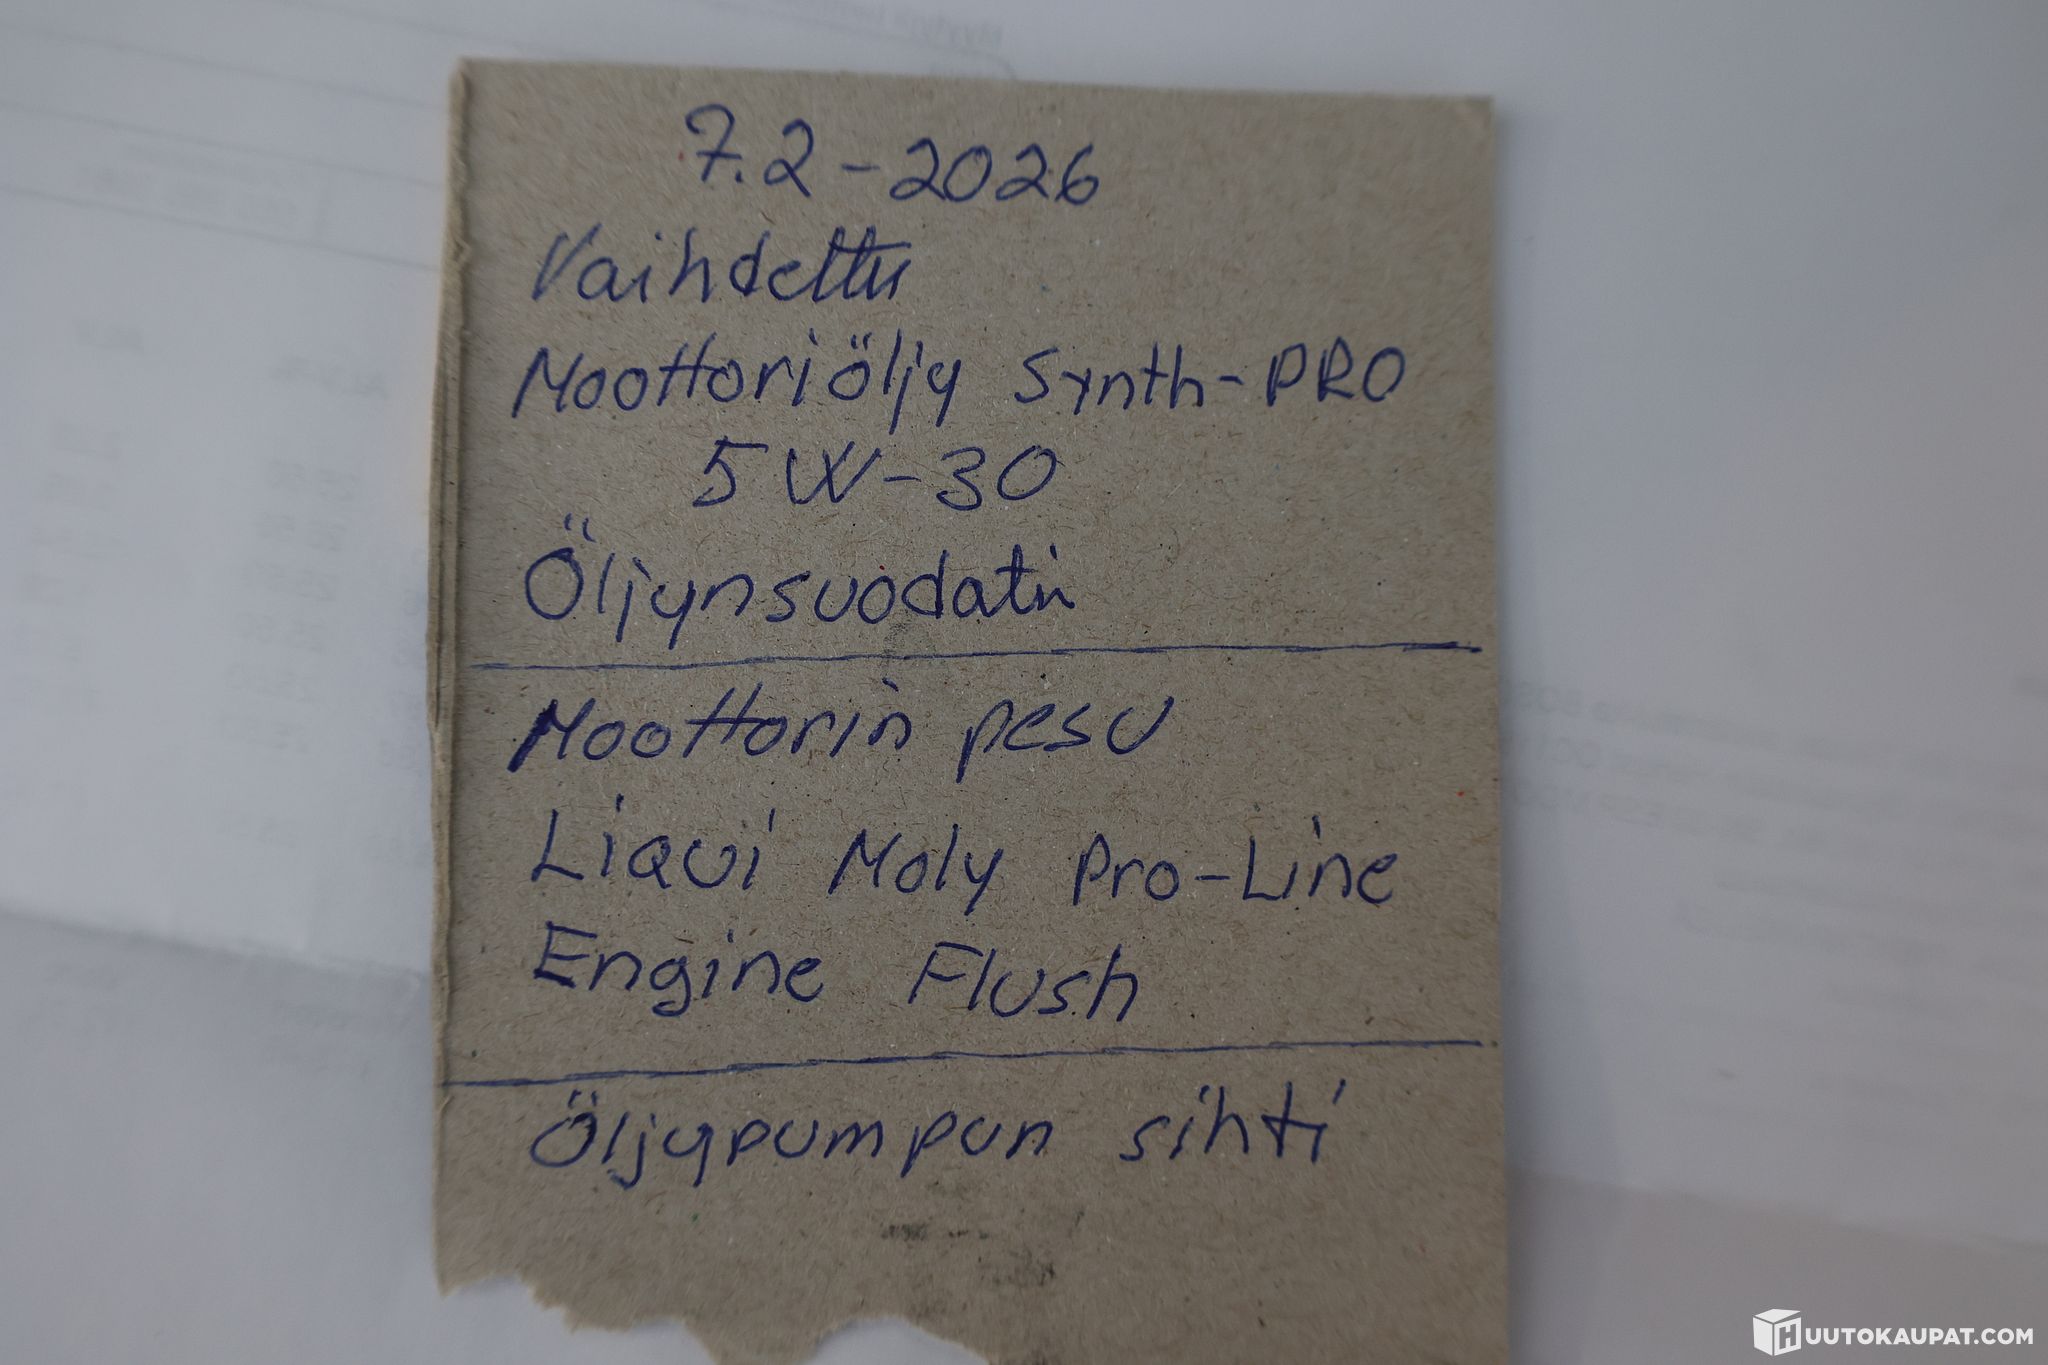 7.2-2026
Vaihdettu
Moottoriöljy Synth-PRO
5W-30
Öljynsuodatin
Moottorin pesu
Liqui Moly Pro-Line
Engine Flush
Öljypumpun sihti
HUUTOKAUPAT.COM